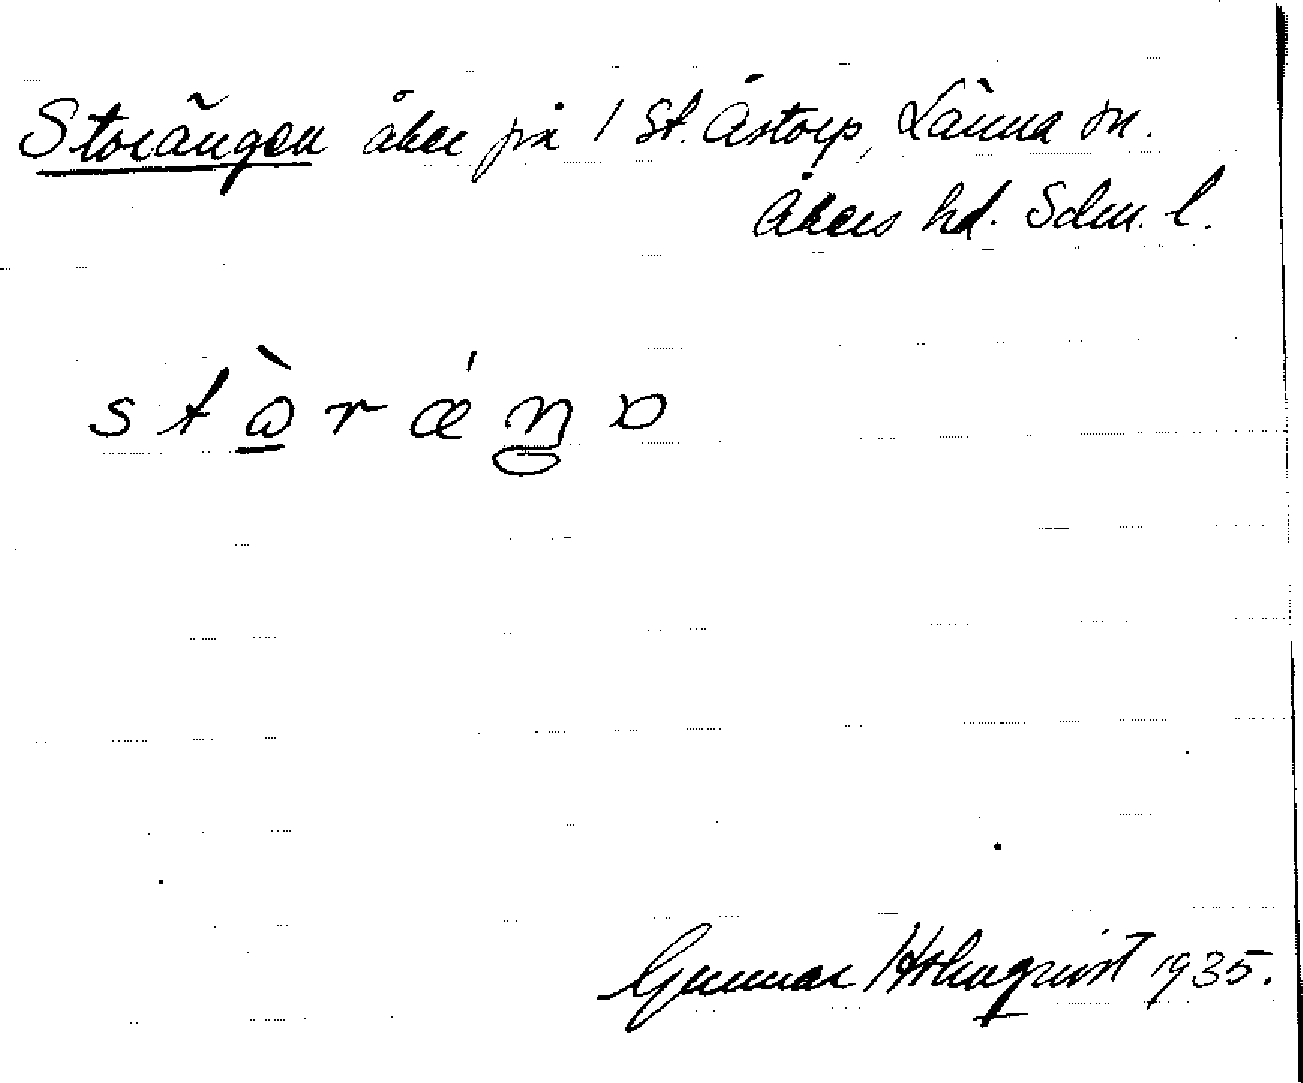 Storängen åker på 1 St. Åstorp, Länna sn.
Åkers hd. Sdm. l.
Gunnar Holmqvist 1935.